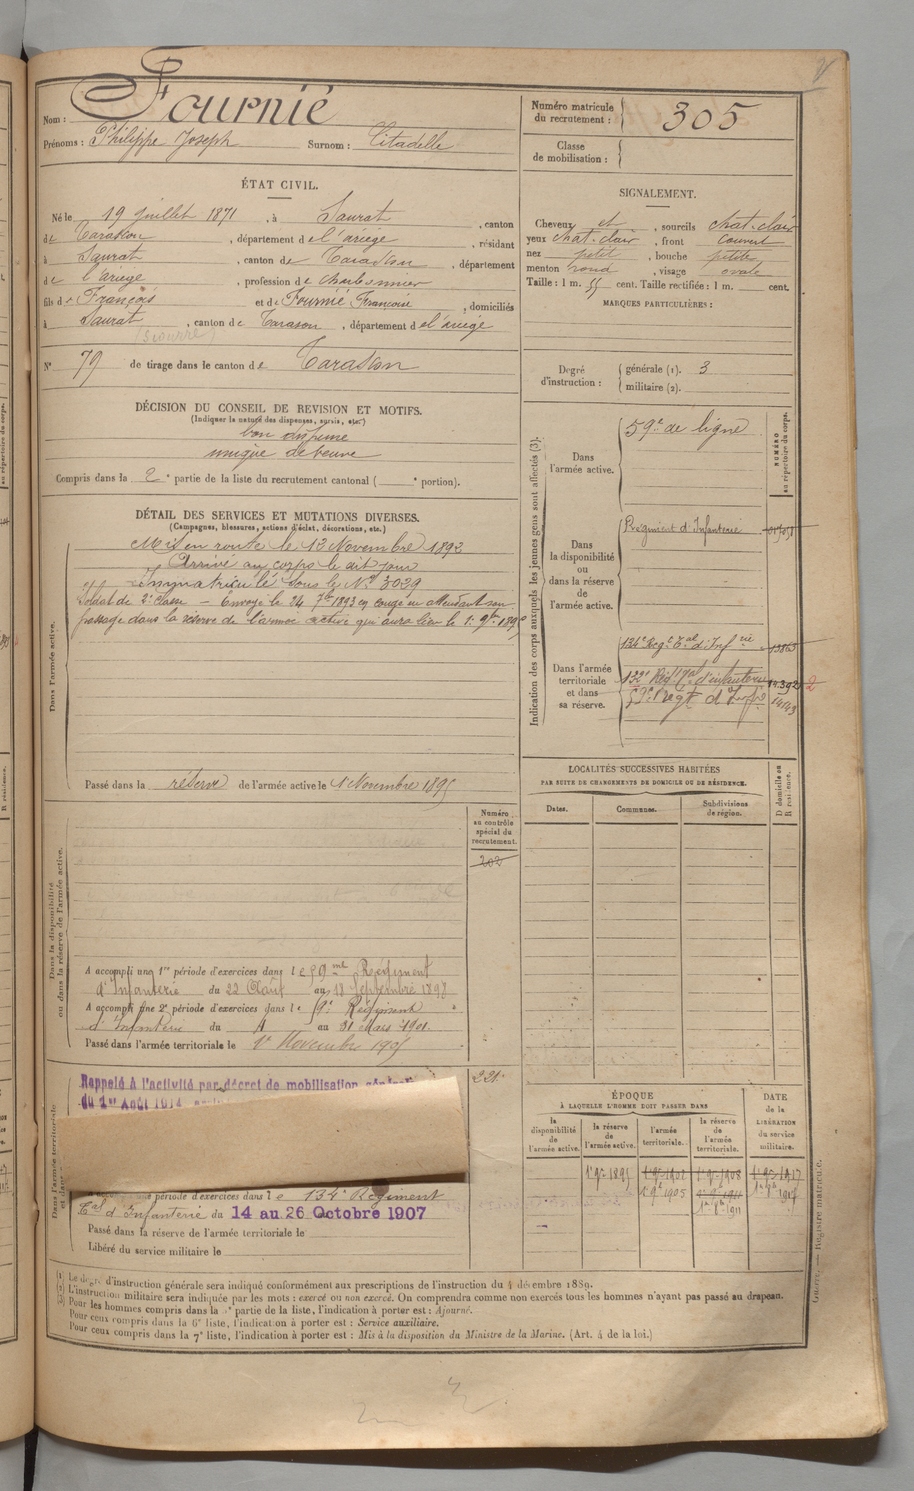 Nom : Fournié
Prénoms : Philippe Joseph Surnom : Citadelle
Numéro matricule du recrutement : 305
Classe de mobilisation :
ÉTAT CIVIL.
Né le 19 juillet 1871, à Saurat, canton
de Tarascon, département de l'ariège, résidant
à Saurat, canton de Tarascon, département
de l'ariège, profession de charbonnier
fils de François et de Fournié Françoise, domiciliés
à Saurat, canton de Tarascon, département de l'ariège
N° 79 de tirage dans le canton de Tarascon
SIGNALEMENT.
Cheveux et, sourcils chat-clair
yeux chat-clair, front couvert
nez petit, bouche petite
menton rond, visage ovale
Taille : 1 m. 55 cent. Taille rectifiée : 1 m. cent.
MARQUES PARTICULIÈRES :
Degré d'instruction :
générale (1). 3
militaire (2).
DÉCISION DU CONSEIL DE REVISION ET MOTIFS.
(Indiquer la nature des dispenses, sursis, etc.)
bon
unique de veuve
Compris dans la 2e partie de la liste du recrutement cantonal ( e portion).
DÉTAIL DES SERVICES ET MUTATIONS DIVERSES.
(Campagnes, blessures, actions d'éclat, décorations, etc.)
Dans l'armée active.
Mis en route le 13 Novembre 1892
Arrivé au corps le dit jour
Immatriculé sous le N° 3029
Soldat de 2e classe — Envoyé le 24 7bre 1893 en congé en attendant son
passage dans la réserve de l'armée active qui aura lieu le 1er 9bre 1895
Passé dans la réserve de l'armée active le 1er Novembre 1895
Indication des corps auxquels les jeunes gens sont affectés (3).
NUMÉRO au répertoire du corps.
Dans l'armée active.
59e de ligne
Dans la disponibilité ou dans la réserve de l'armée active.
Régiment d'Infanterie
Dans l'armée territoriale et dans sa réserve.
134e Regt Tal d'Infrie
132e Régt Tal d'infanterie
59e Regt d'Infie 14143
LOCALITÉS SUCCESSIVES HABITÉES
PAR SUITE DE CHANGEMENTS DE DOMICILE OU DE RÉSIDENCE.
Dates.
Communes.
Subdivisions de région.
D domicile ou R résidence.
Dans la disponibilité ou dans la réserve de l'armée active.
Numéro au contrôle spécial du recrutement.
202
A accompli une 1re période d'exercices dans le 59me Régiment
d'Infanterie du 22 Août au 18 Septembre 1898
A accompli une 2e période d'exercices dans le 59e Régiment
d'Infanterie du 4 au 31 Mars 1901
Passé dans l'armée territoriale le 1er Novembre 1905
Dans l'armée territoriale
221.
Rappelé à l'activité par décret de mobilisation
du 1er Août 1914
période d'exercices dans le 134e Régiment
Tal d'Infanterie du 14 au 26 Octobre 1907
Passé dans la réserve de l'armée territoriale le
Libéré du service militaire le
ÉPOQUE
À LAQUELLE L'HOMME DOIT PASSER DANS
DATE de la LIBÉRATION du service militaire.
la disponibilité de l'armée active.
la réserve de l'armée active.
l'armée territoriale.
la réserve de l'armée territoriale.
1er 9bre 1895
1er 9bre 1902
1er 9bre 1908
1er 9bre 1917
1er 9bre 1905
1er 9bre 1911
(1) Le degré d'instruction générale sera indiqué conformément aux prescriptions de l'instruction du 4 décembre 1889.
(2) L'instruction militaire sera indiquée par les mots : exercé ou non exercé. On comprendra comme non exercés tous les hommes n'ayant pas passé au drapeau.
(3) Pour les hommes compris dans la 5e partie de la liste, l'indication à porter est : Ajourné.
Pour ceux compris dans la 6e liste, l'indication à porter est : Service auxiliaire.
Pour ceux compris dans la 7e liste, l'indication à porter est : Mis à la disposition du Ministre de la Marine. (Art. 4 de la loi.)
Guerre. — Registre matricule.